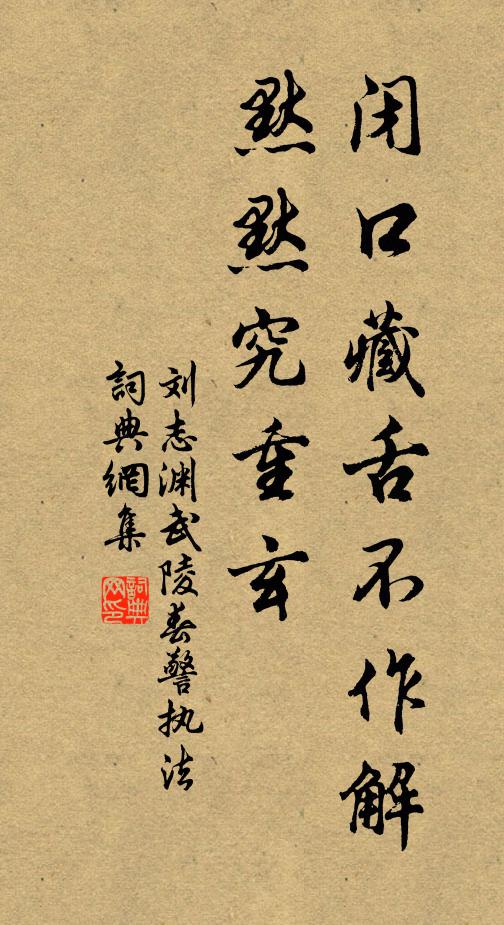 闭口藏舌不作解
默默究重玄
刘志渊武陵春警执法
詞典網集
詞典網印